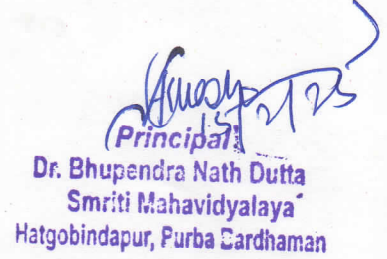 15/2/23
Principal
Dr. Bhupendra Nath Dutta
Smriti Mahavidyalaya
Hatgobindapur, Purba Bardhaman